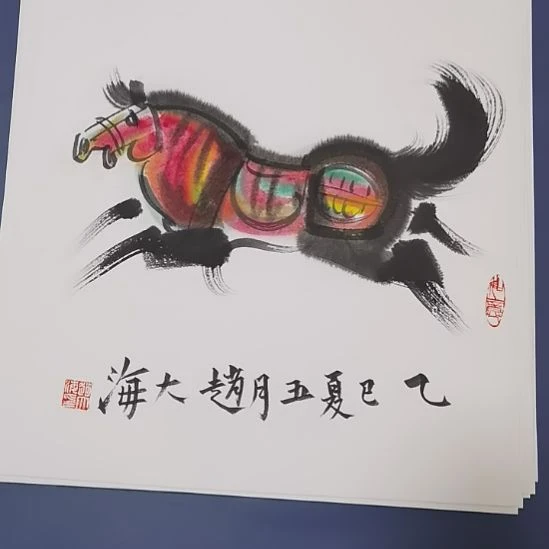 乙巳夏五月趙大海